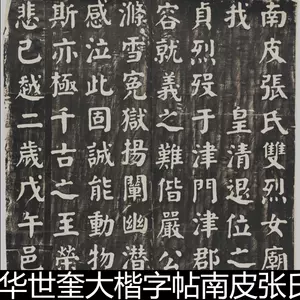 南皮張氏雙烈女廟
我 皇清退位之
貞烈歿于津門津郡
容就義之難偕嚴公
滌雪冤獄揚闡幽潛
感泣此固誠能動物
斯亦極千古之至榮
悲已越二歲戊午邑
华世奎大楷字帖南皮张